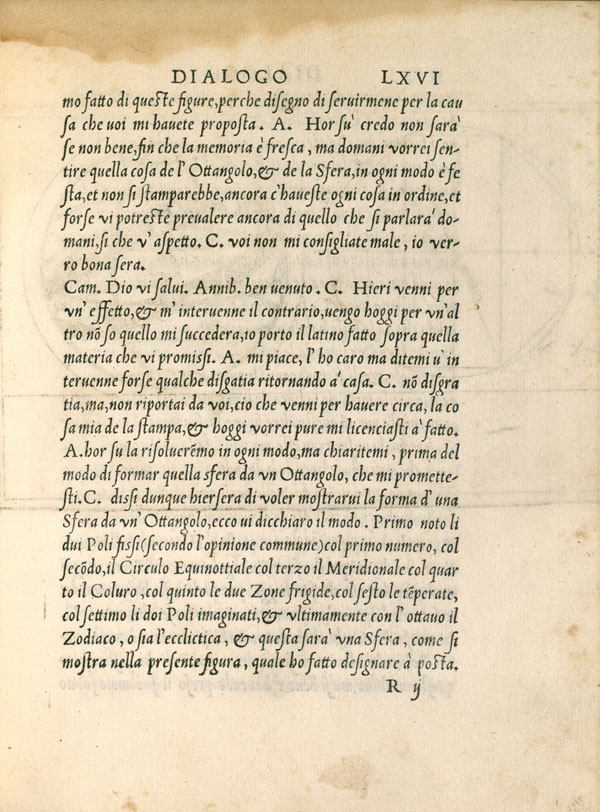 DIALOGO LXVI
mo fatto di queste figure,perche disegno di seruirmene per la cau
sa che uoi mi hauete proposta. A. Hor su' credo non sara'
se non bene,fin che la memoria è fresca, ma domani vorrei sen-
tire quella cosa de l' Ottangolo,& de la Sfera,in ogni modo è fe
sta,et non si stamparebbe,ancora c'haueste ogni cosa in ordine,et
forse vi potreste preualere ancora di quello che si parlara' do-
mani,si che v' aspetto. C. voi non mi consigliate male, io ver-
ro bona sera.
Cam. Dio vi salui. Annib. ben uenuto. C. Hieri venni per
vn' effetto,& m' interuenne il contrario,uengo hoggi per vn'al
tro nõ so quello mi succedera,io porto il latino fatto sopra quella
materia che vi promissi. A. mi piace, l' ho caro ma ditemi u' in
teruenne forse qualche disgatia ritornando a' casa. C. nõ disgra
tia,ma,non riportai da voi,cio che venni per hauere circa, la co
sa mia de la stampa,& hoggi vorrei pure mi licenciasti à fatto.
A.hor su la risoluerẽmo in ogni modo,ma chiaritemi, prima del
modo di formar quella sfera da vn Ottangolo, che mi promette-
sti.C. dissi dunque hiersera di voler mostrarui la forma d' una
Sfera da vn' Ottangolo,ecco ui dicchiaro il modo. Primo noto li
dui Poli fissi(secondo l'opinione commune)col primo numero, col
secõdo, il Circulo Equinottiale col terzo il Meridionale col quar
to il Coluro, col quinto le due Zone frigide, col sesto le tẽperate,
col settimo li doi Poli imaginati,& vltimamente con l' ottauo il
Zodiaco, o sia l'ecclictica, & questa sara' vna Sfera, come si
mostra nella presente figura, quale ho fatto designare à posta.
R ij